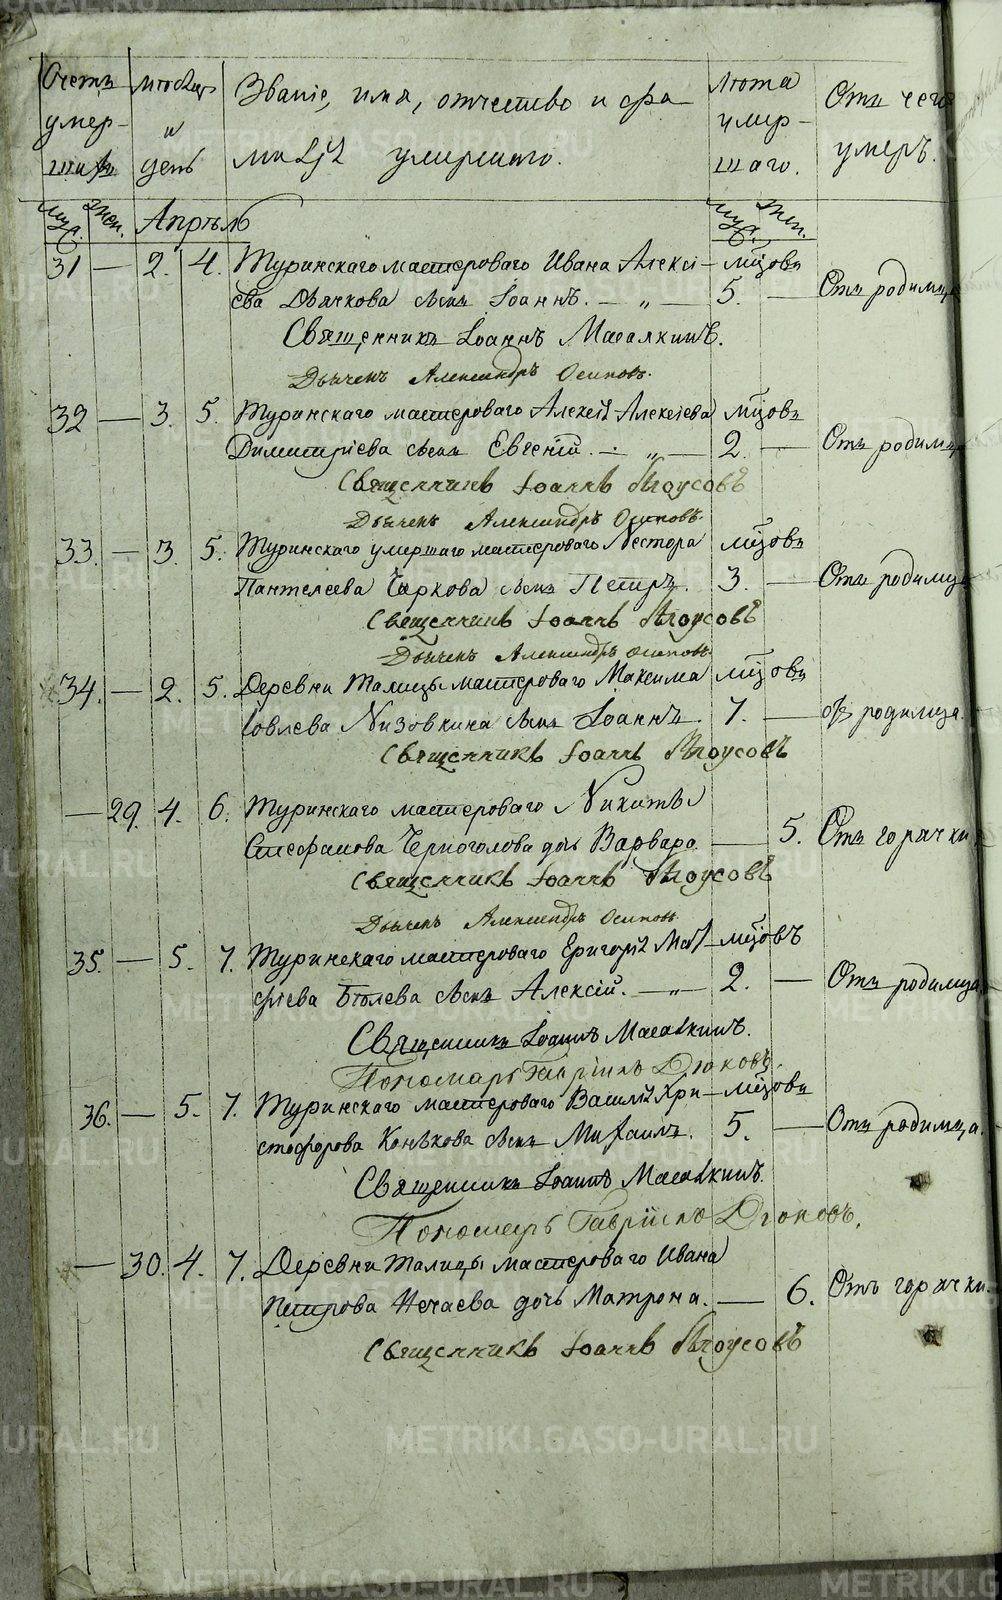 Счетъ умер- шихъ
Мѣсяцъ и день
Званіе, имя, отчество и фа-
милія умершаго.
Лѣта умер- шаго.
Отъ чего умеръ.
Муж. Жен. Апрѣль Муж. Жен.
31 — 2. 4. Туринскаго мастероваго Ивана Алексі- мѣсцовъ
ева Дьячкова сынъ Іоаннъ. — „ — 5. — Отъ родимца
Священникъ Іоаннъ
Дьячекъ Александръ Осиповъ.
32 — 3. 5. Туринскаго мастероваго Алексія Алексіева мѣсцовъ
Димитріева сынъ Евгеній. — „ — 2. — Отъ родимца
Священникъ Іоаннъ
Дьячекъ Александръ Осиповъ.
33. — 3. 5. Туринскаго умершаго мастероваго Нестора мѣсцовъ
Пантелеева Чаркова сынъ Петръ. 3. — Отъ родимца
Священникъ Іоаннъ
Дьячекъ Александръ Осиповъ.
34. — 2. 5. Деревни Талицы мастероваго Максима мѣсцовъ
Іовлева Низовкина сынъ Іоаннъ. 7. — отъ родимца.
Священникъ Іоаннъ
— 29. 4. 6. Туринскаго мастероваго Никиты
Стефанова Черноголова дочь Варвара. — 5. Отъ горячки
Священникъ Іоаннъ
Дьячекъ Александръ Осиповъ
35. — 5. 7. Туринскаго мастероваго Григорія Мат- мѣсцовъ
фіева сынъ Алексій. — „ — 2. — Отъ родимца.
Священникъ Іоаннъ
Пономарь Гавріилъ Дюковъ.
36. — 5. 7. Туринскаго мастероваго Василія Хри- мѣсцовъ
стофорова Конькова сынъ Михаилъ. 5. — Отъ родимца.
Священникъ Іоаннъ
Пономарь Гавріилъ Дюковъ.
— 30. 4. 7. Деревни Талицы мастероваго Ивана
Петрова Нечаева дочь Матрона. — 6. Отъ горячки.
Священникъ Іоаннъ
METRIKI.GASO-URAL.RU